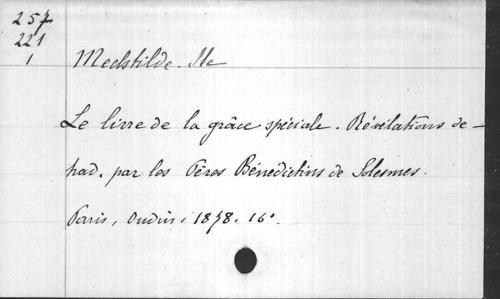 257
221
1
Mechtilde. Ste
Le livre de la grâce spéciale. Révélations de —
trad. par les Pères Bénédictins de Solesmes.
Paris, Oudin, 1878. 16°.